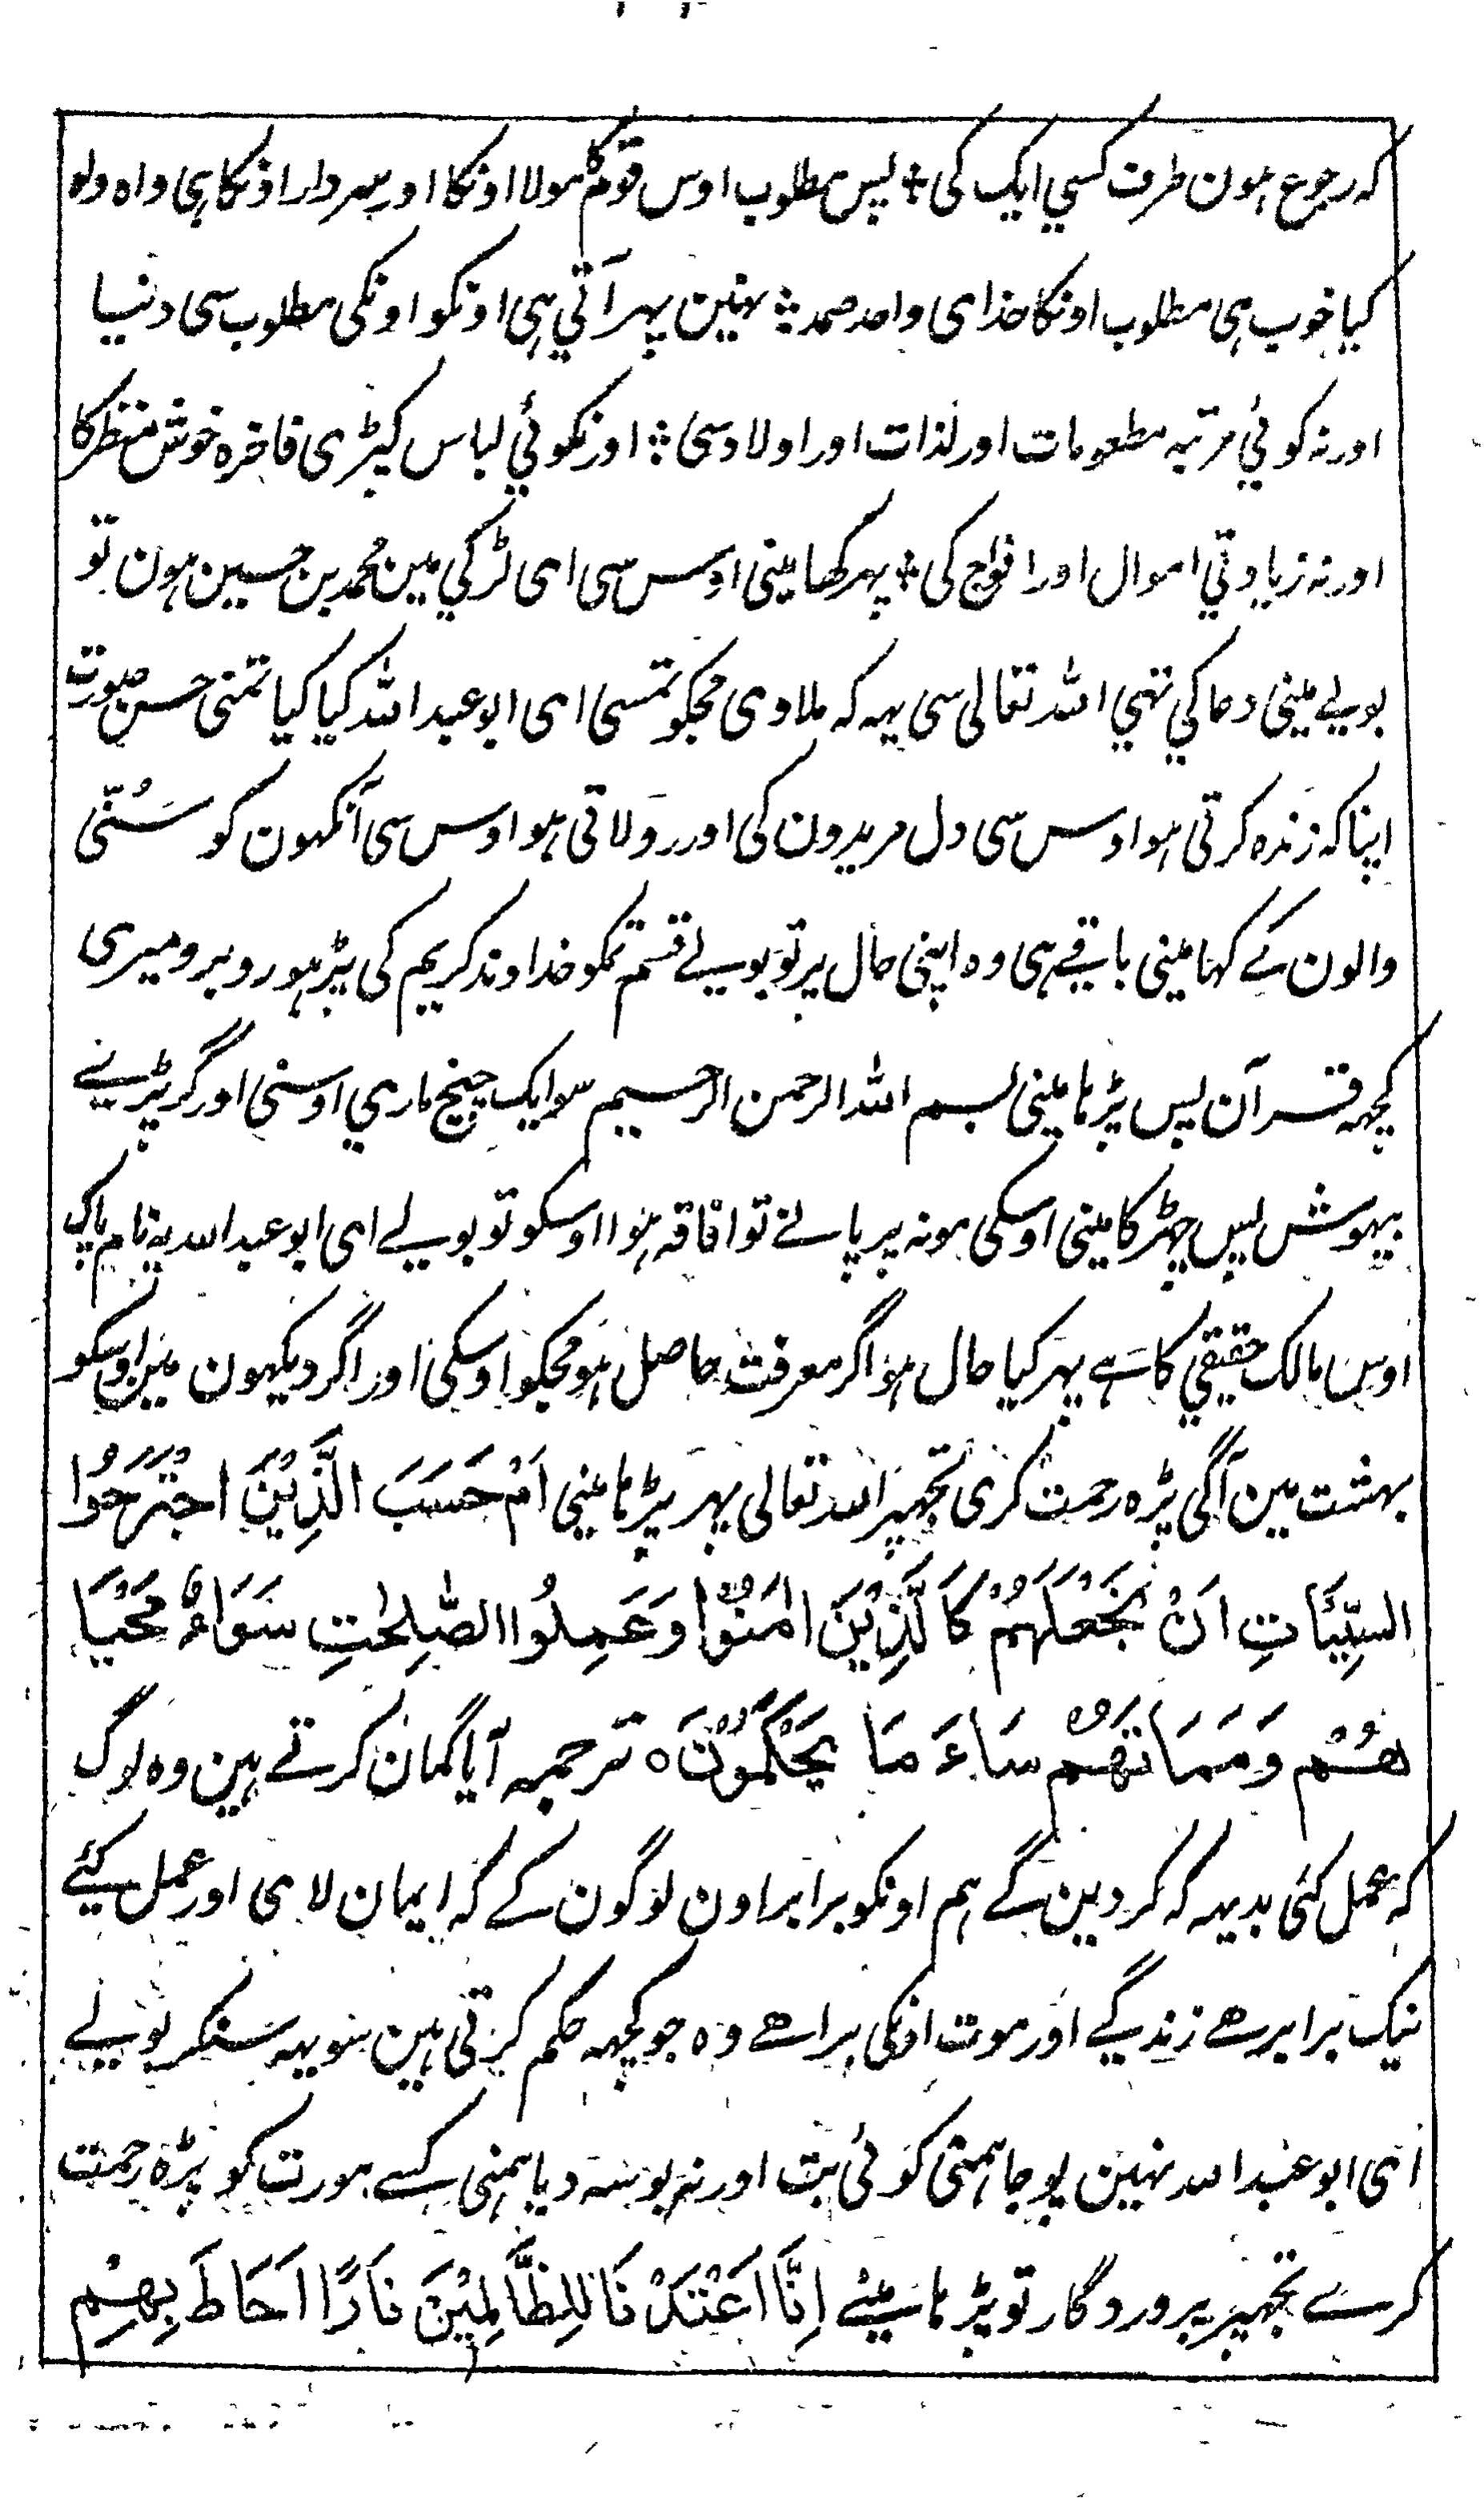 که رجوع ہون طرف کسي ایک کی + پس مطلوب اوس قوم کا مولا اونکا اور سردار اونکا ہی واہ واہ
کیا خوب ہی مطلوب اونکا خدای واحد صمد ÷ نہین پہر آتي ہی اونکو اونکی مطلوب سی دنیا
اور نہ کوئي مرتبہ مطعومات اور لذات اور اولاد سی ÷ اور نکوئي لباس کپڑی فاخرہ خوش منظر کا
اور نہ زیادتي اموال اور افواج کی + پہر کھا مینی اوس سی ای لڑکي مین محمد بن حسین ہون تو
بولے مینی دعا کي تہي اللہ تعالی سی یہہ کہ ملاوی مجکو تمسی ای ابو عبد اللہ کیا کیا تمنی حسن صورت
اپنا کہ زندہ کرتی ہو اوس سی دل مریدون کی اور رولاتی ہو اوس سی آنکہون کو سُنّی
والون کے کہا مینی باقے ہی وہ اپنی حال پر تو بولے قسم تمکو خداوند کریم کی پڑہو روبرو میری
کچہہ قرآن پس پڑہا مینی بسم اللہ الرحمن الرحیم سو ایک چیخ ماري اوسنی اور گر پڑنے
بیہوش پس چھڑکا مینی اوسکی مونہ پر پانے تو افاقہ ہوا اوسکو تو بولے ای ابو عبد اللہ یہ نام پاک
اوس مالک حقیقي کا ہے پہر کیا حال ہو اگر معرفت حاصل ہو مجکو اوسکی اور اگر دیکہون مین اوسکو
بہشت مین آگی پڑہ رحمت کری تجہپر اللہ تعالی پہر پڑہا مینی اَمْ حَسَبَ الَّذِیْنَ اجْتَرَحُوا
السِّیِّئَاتِ اَنْ نَجْعَلَہُمْ کَالَّذِیْنَ اٰمَنُوْا وَعَمِلُوا الصّٰلِحٰتِ سَوَاءً مَحْیَا
ھُمْ وَمَمَاتَهُمْ سَاءَ مَا یَحْکُمُوْنَ ہ ترجمہ آیا گمان کرتے ہین وہ لوگ
کہ عمل کئی بد یہہ کہ کر دین گے ہم اونکو برابر اون لوگون کے کہ ایمان لای اور عمل کیئے
نیک برابر ھے زندگے اور موت اونکی برا ھے وہ جو کچہہ حکم کرتی ہین سو یہہ سنکر بولے
ای ابو عبد اللہ نہین پوجا ہمنی کوئي بت اور نہ بوسہ دیا ہمنی کسے صورت کو پڑہ رحمت
کرے تجہپر پروردگار تو پڑہا مینے اِنَّا اَعْتَدْنَا لِلظَّالِمِیْنَ نَارًا اَحَاطَ بِهِمْ